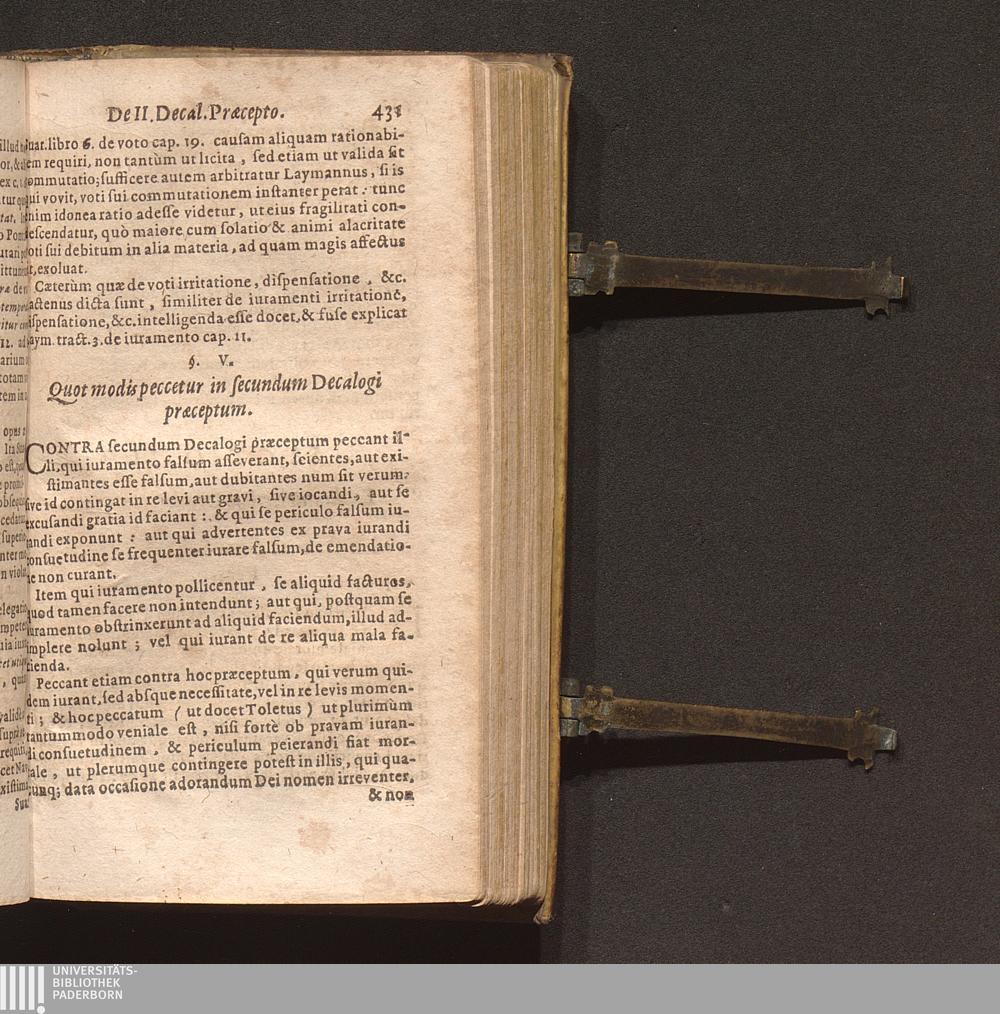 De II. Decal. Præcepto. 431
uar. libro 6. de voto cap. 19. cauſam aliquam rationabi-
em requiri, non tantùm ut licita, ſed etiam ut valida ſit
ommutatio; ſufficere autem arbitratur Laymannus, ſi is
ui vovit, voti ſui commutationem inſtanter petat: tunc
nim idonea ratio adeſſe videtur, ut eius fragilitati con-
eſcendatur, quò maiore cum ſolatio & animi alacritate
oti ſui debitum in alia materia, ad quam magis affectus
it, exoluat.
Cæterùm quæ de voti irritatione, diſpenſatione, &c.
actenus dicta ſunt, ſimiliter de iuramenti irritatione,
iſpenſatione, &c. intelligenda eſſe docet, & fuſe explicat
aym. tract. 3. de iuramento cap. 11.
§. V.
Quot modis peccetur in ſecundum Decalogi
præceptum.
CONTRA ſecundum Decalogi præceptum peccant il-
li, qui iuramento falſum aſſeverant, ſcientes, aut exi-
ſtimantes eſſe falſum, aut dubitantes num ſit verum:
ſive id contingat in re levi aut gravi, ſive iocandi, aut ſe
excuſandi gratia id faciant: & qui ſe periculo falſum iu-
randi exponunt: aut qui advertentes ex prava iurandi
conſuetudine ſe frequenter iurare falſum, de emendatio-
ne non curant.
Item qui iuramento pollicentur, ſe aliquid facturos,
quod tamen facere non intendunt; aut qui, poſtquam ſe
iuramento obſtrinxerunt ad aliquid faciendum, illud ad-
implere nolunt; vel qui iurant de re aliqua mala fa-
cienda.
Peccant etiam contra hoc præceptum, qui verum qui-
dem iurant, ſed abſque neceſſitate, vel in re levis momen-
ti; & hoc peccatum (ut docet Toletus) ut plurimùm
tantummodo veniale eſt, niſi fortè ob pravam iuran-
di conſuetudinem, & periculum peierandi fiat mor-
ale, ut plerumque contingere poteſt in illis, qui qua-
cunq; data occaſione adorandum Dei nomen irreventer,
& non
UNIVERSITÄTS-
BIBLIOTHEK
PADERBORN